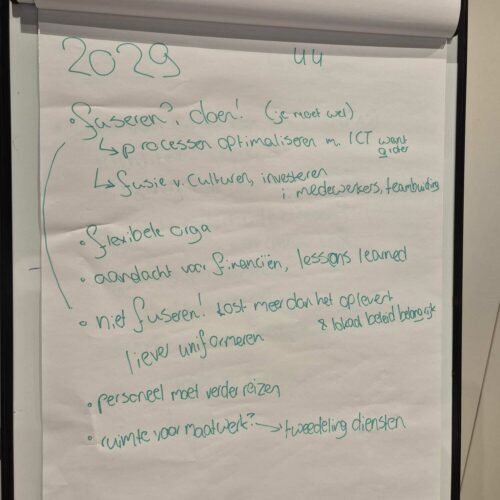 2029 44
• fuseren?, doen! (je moet wel)
↳ processen optimaliseren m. ICT want
↳ fusie v. culturen, investeren
i. medewerkers, teambuilding
• flexibele orga
• aandacht voor financiën, lessons learned
• niet fuseren! kost meer dan het oplevert
& lokaal beleid belangrijk
liever uniformeren
• personeel moet verder reizen
• ruimte voor maatwerk? → tweedeling diensten